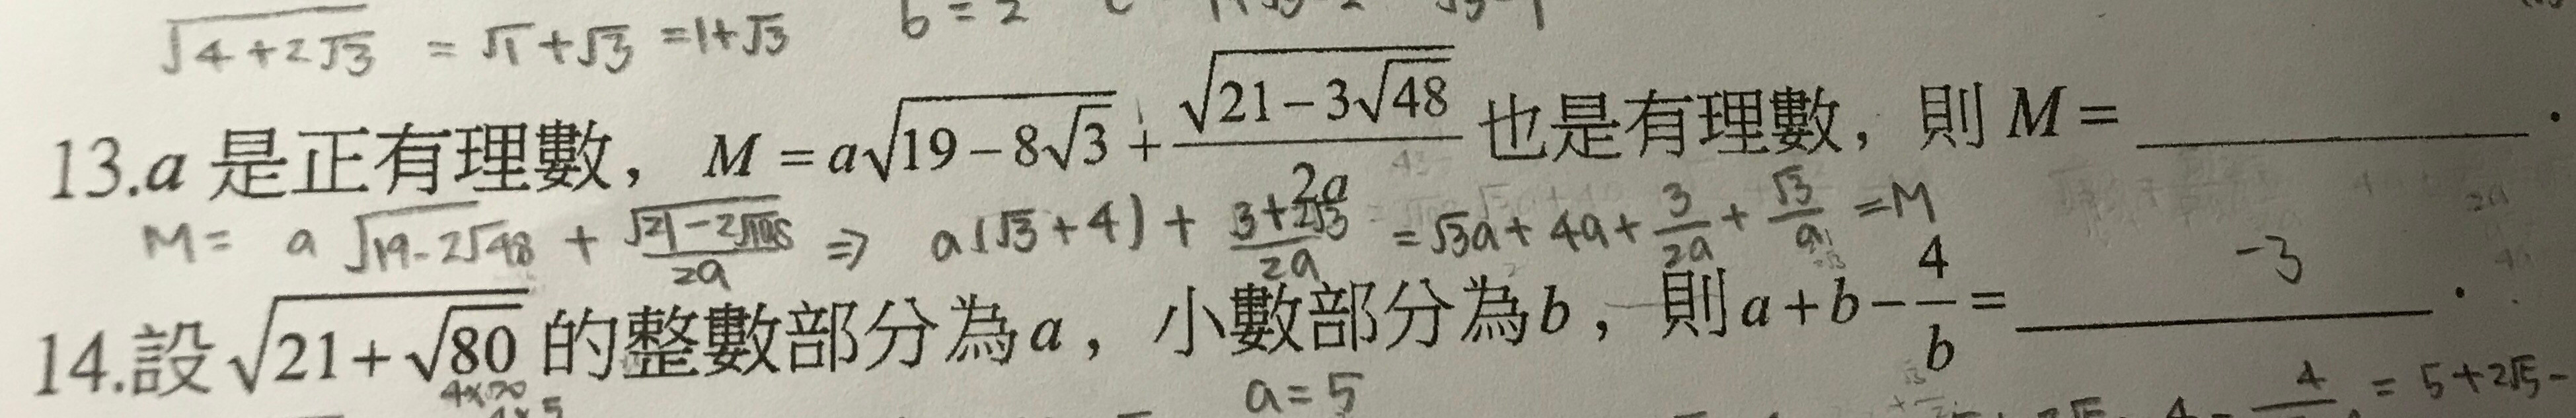 √(4+2√3) = √1+√3 = 1+√3 b = 2
13.a 是正有理數，M = a√(19-8√3) + √(21-3√48)/2a 也是有理數，則 M = ______.
M = a√(19-2√48) + √(21-2√108)/2a ⇒ a(√3+4) + (3+2√3)/2a = √3a + 4a + 3/2a + √3/a = M
-3
14.設 √(21+√80) 的整數部分為 a，小數部分為 b，則 a+b-4/b = ______.
a = 5
= 5+2√5-